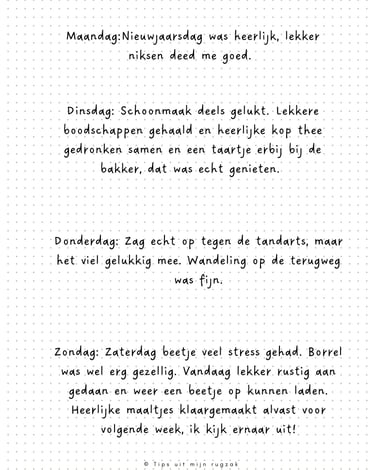 Maandag:Nieuwjaarsdag was heerlijk, lekker
niksen deed me goed.
Dinsdag: Schoonmaak deels gelukt. Lekkere
boodschappen gehaald en heerlijke kop thee
gedronken samen en een taartje erbij bij de
bakker, dat was echt genieten.
Donderdag: Zag echt op tegen de tandarts, maar
het viel gelukkig mee. Wandeling op de terugweg
was fijn.
Zondag: Zaterdag beetje veel stress gehad. Borrel
was wel erg gezellig. Vandaag lekker rustig aan
gedaan en weer een beetje op kunnen laden.
Heerlijke maaltjes klaargemaakt alvast voor
volgende week, ik kijk ernaar uit!
© Tips uit mijn rugzak